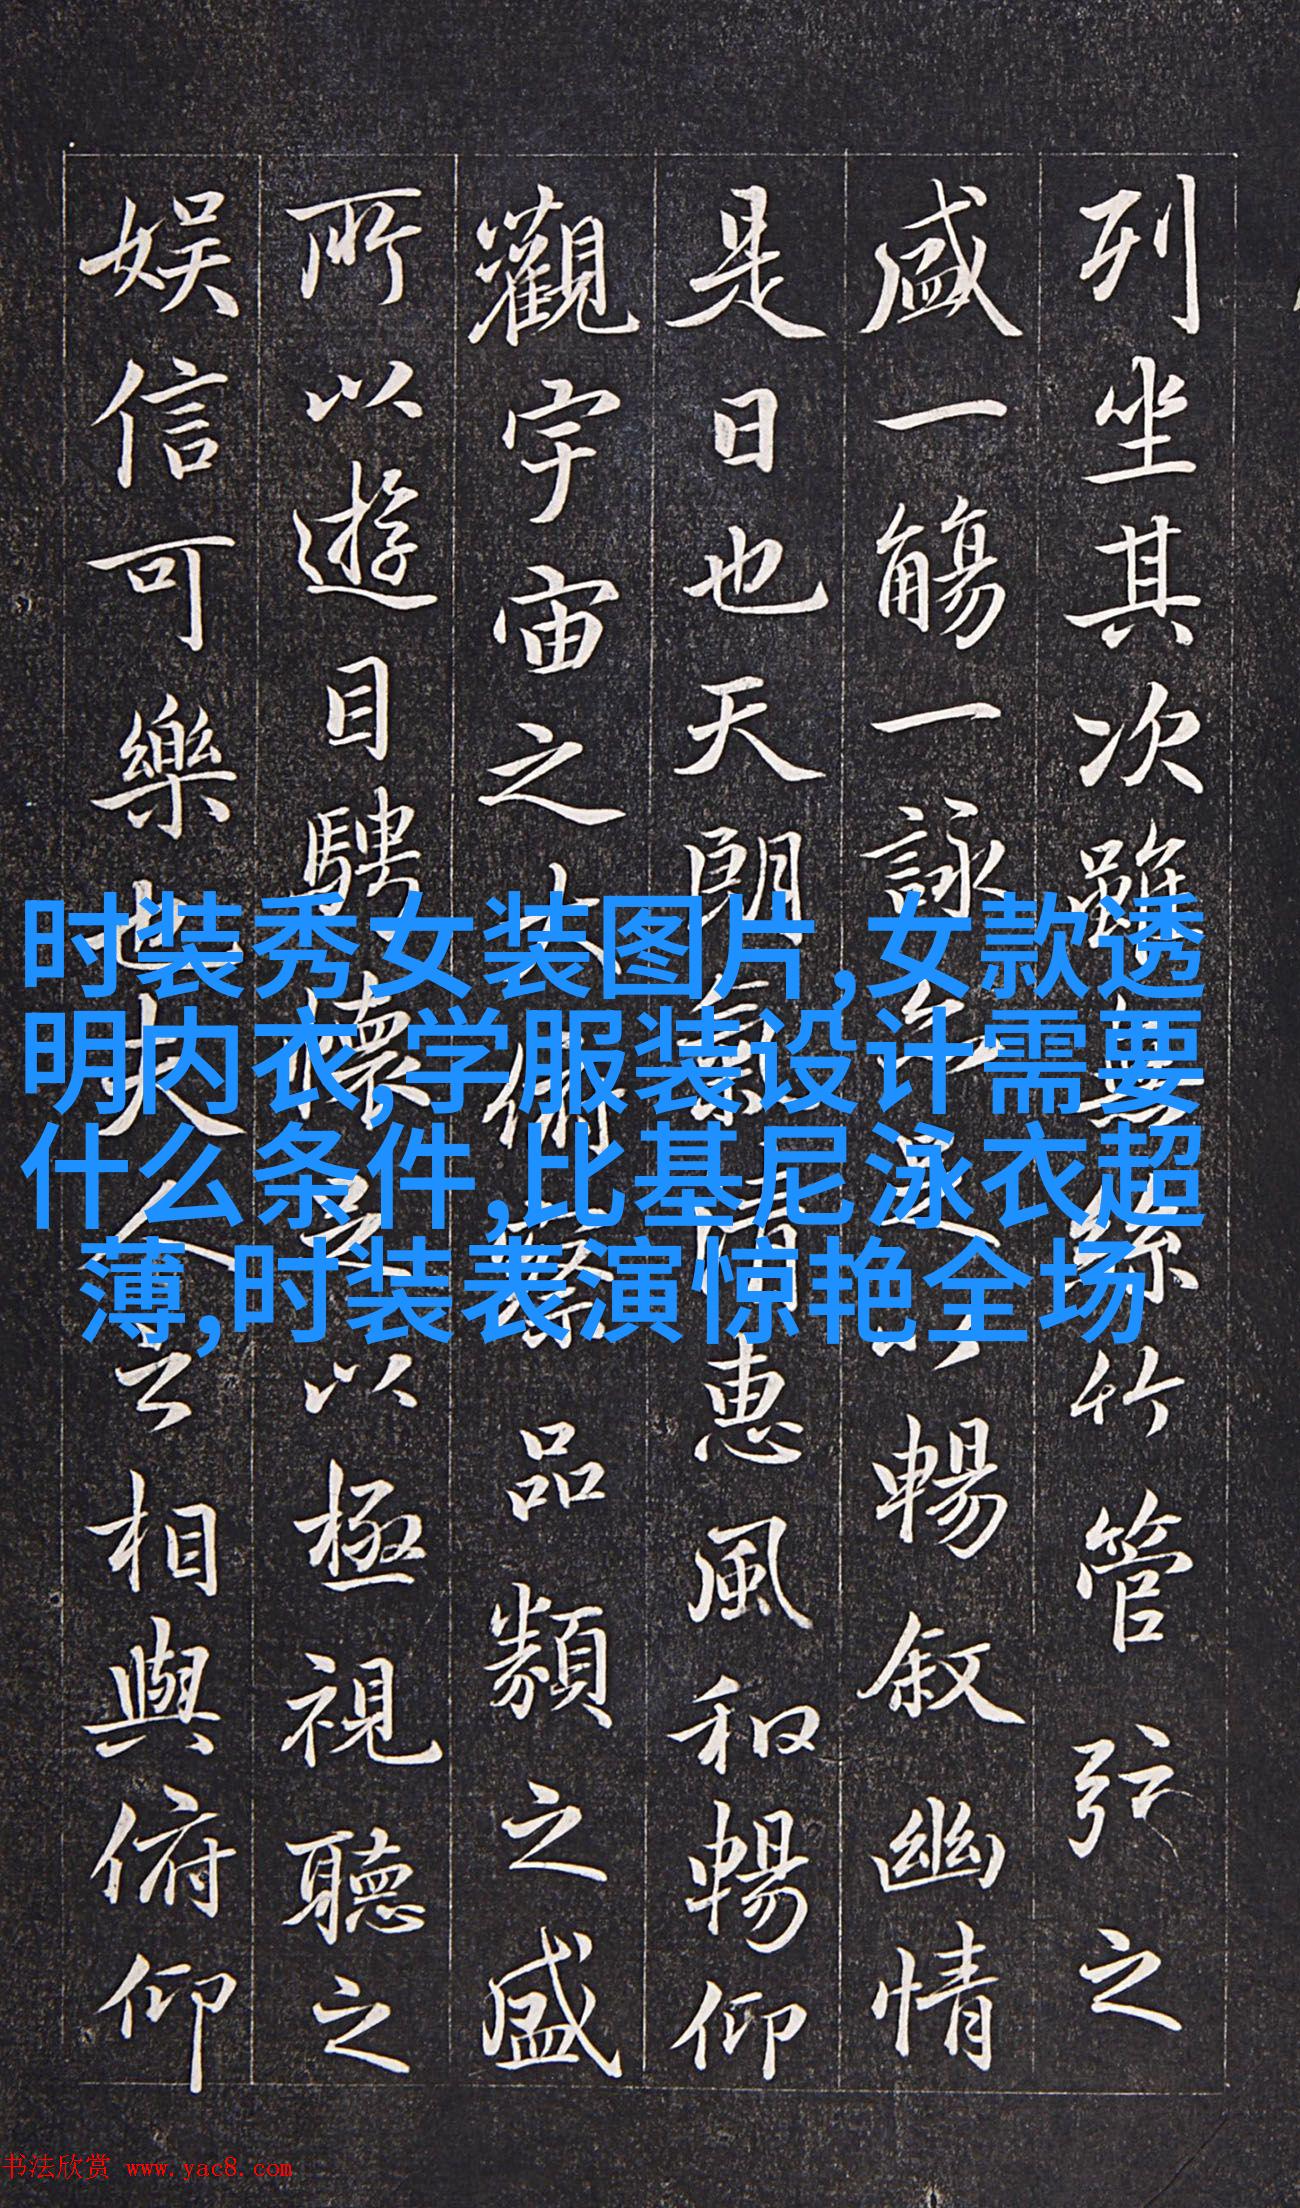 列坐其次雖無絲竹管弦之
盛一觴一詠亦足以暢敘幽情
是日也天朗氣清惠風和暢仰
觀宇宙之大俯察品類之盛
所以遊目騁懷足以極視聽之
娛信可樂也夫人之相與俯仰
时装秀女装图片,女款透
明内衣,学服装设计需要
什么条件,比基尼泳衣超
薄,时装表演惊艳全场
书法欣赏 www.yac8.com